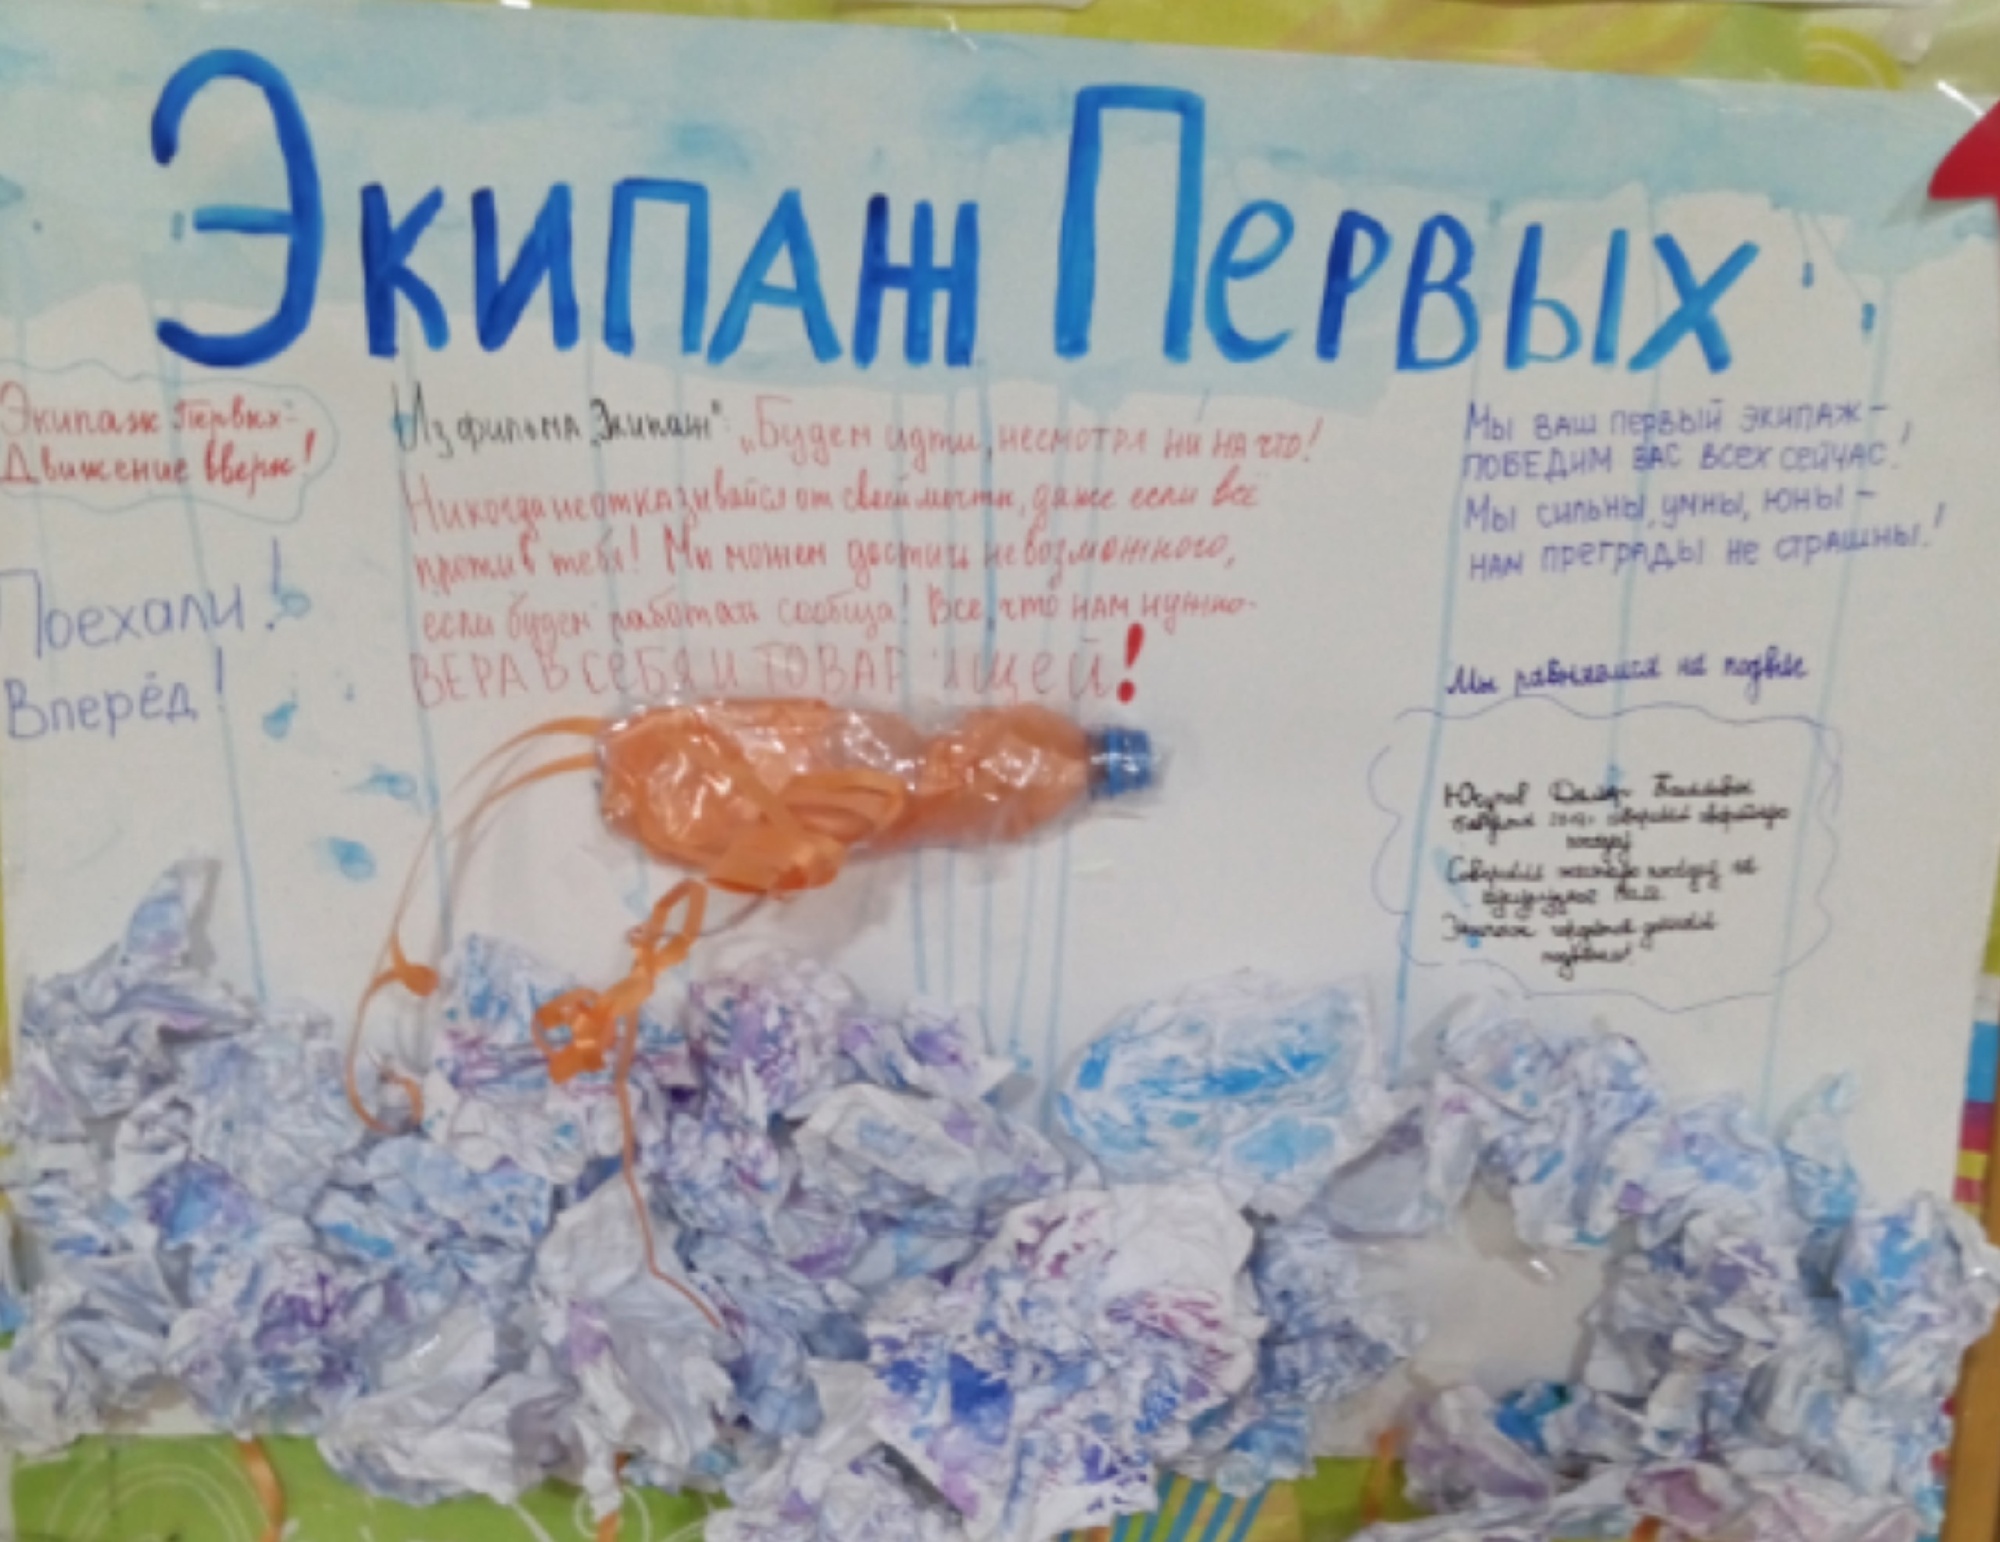 Экипаж Первых
Экипаж Первых-
Движение вверх!
Поехали!
Вперёд!
Из фильма „Экипаж": „Будем идти, несмотря ни на что!
Никогда не отказывайся от своей мечты, даже если всё
против тебя! Мы можем достичь невозможного,
если будем работать сообща! Все, что нам нужно-
ВЕРА В СЕБЯ И ТОВАРищей!
Мы ваш первый экипаж-
победим вас всех сейчас!
Мы сильны, умны, юны-
нам преграды не страшны!
Мы равняемся на подвиг
Юсупов Дамир
2019 совершил аварийную
посадку
Совершили посадку на
Экипаж